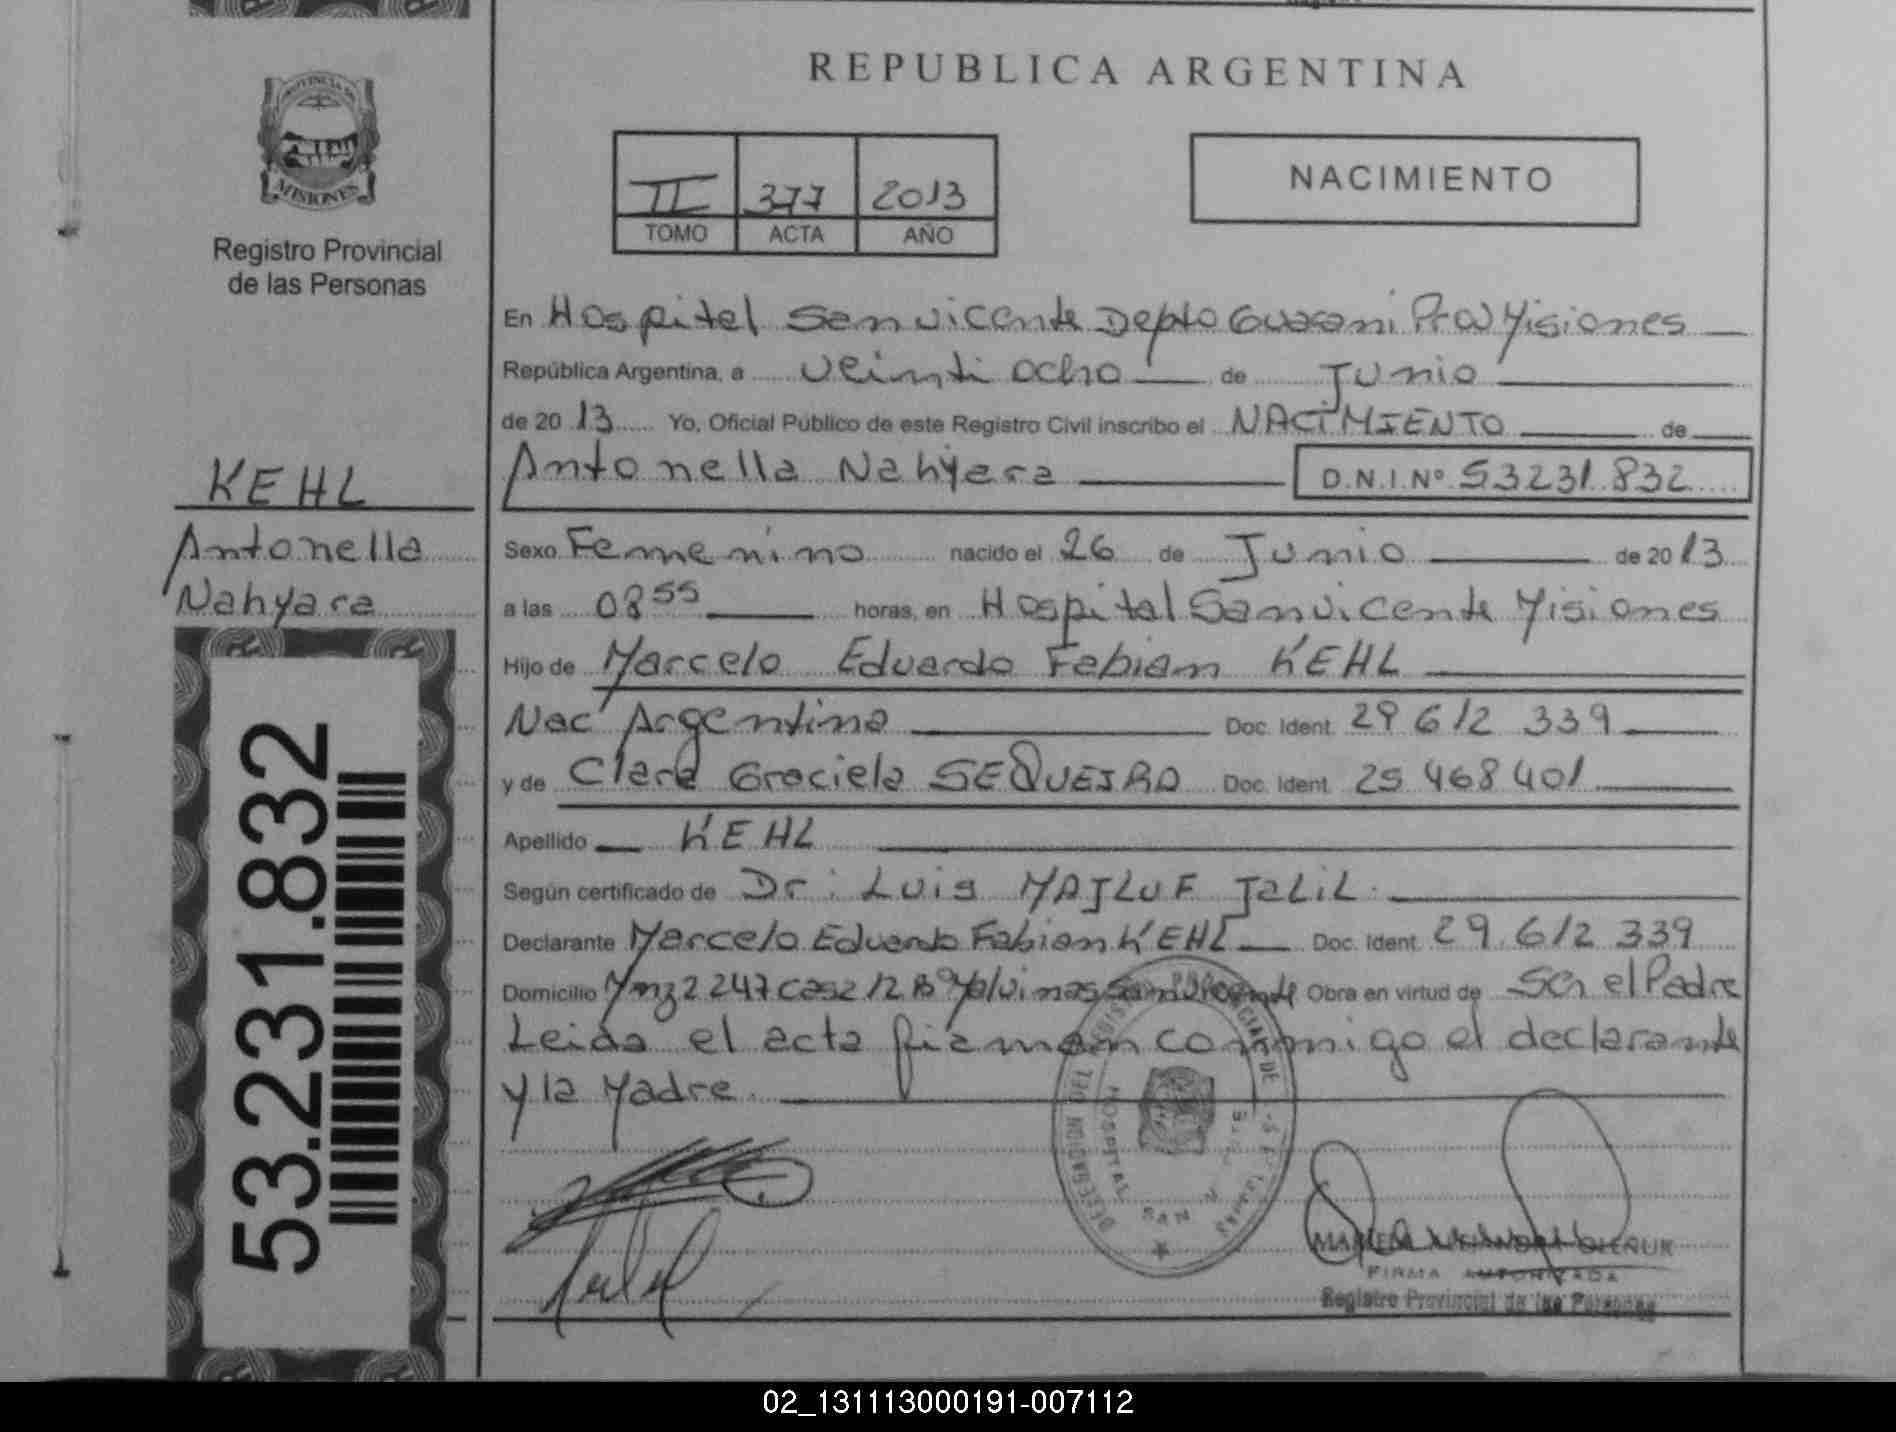 REPUBLICA ARGENTINA
PROVINCIA DE
MISIONES
Registro Provincial
de las Personas
II 377 2013
TOMO ACTA AÑO
NACIMIENTO
En Hospital San Vicente Depto Guarani Misiones
República Argentina, a veinti ocho de Junio
de 2013 Yo, Oficial Público de este Registro Civil inscribo el NACIMIENTO de
Antonella Nahyara D.N.I.Nº 53231.832
KEHL
Antonella
Nahyara
Sexo Femenino nacido el 26 de Junio de 2013
a las 08 55 horas, en Hospital San Vicente Misiones
Hijo de Marcelo Eduardo Fabian KEHL
Nac Argentina Doc. Ident. 29 612 339
y de Clara Graciela SEQUEIRA Doc. Ident. 25 468 401
Apellido KEHL
Según certificado de Dr: Luis MAJLUF JALIL
Declarante Marcelo Eduardo Fabian KEHL Doc. Ident. 29.612 339
Domicilio Mnz 2 247 casa 12 Bº Malvinas San Vicente Obra en virtud de ser el Padre
Leida el acta firman conmigo el declarante
y la Madre
53.231.832
HOSPITAL SAN
FIRMA AUTORIZADA
Registro Provincial de las Personas
02_131113000191-007112